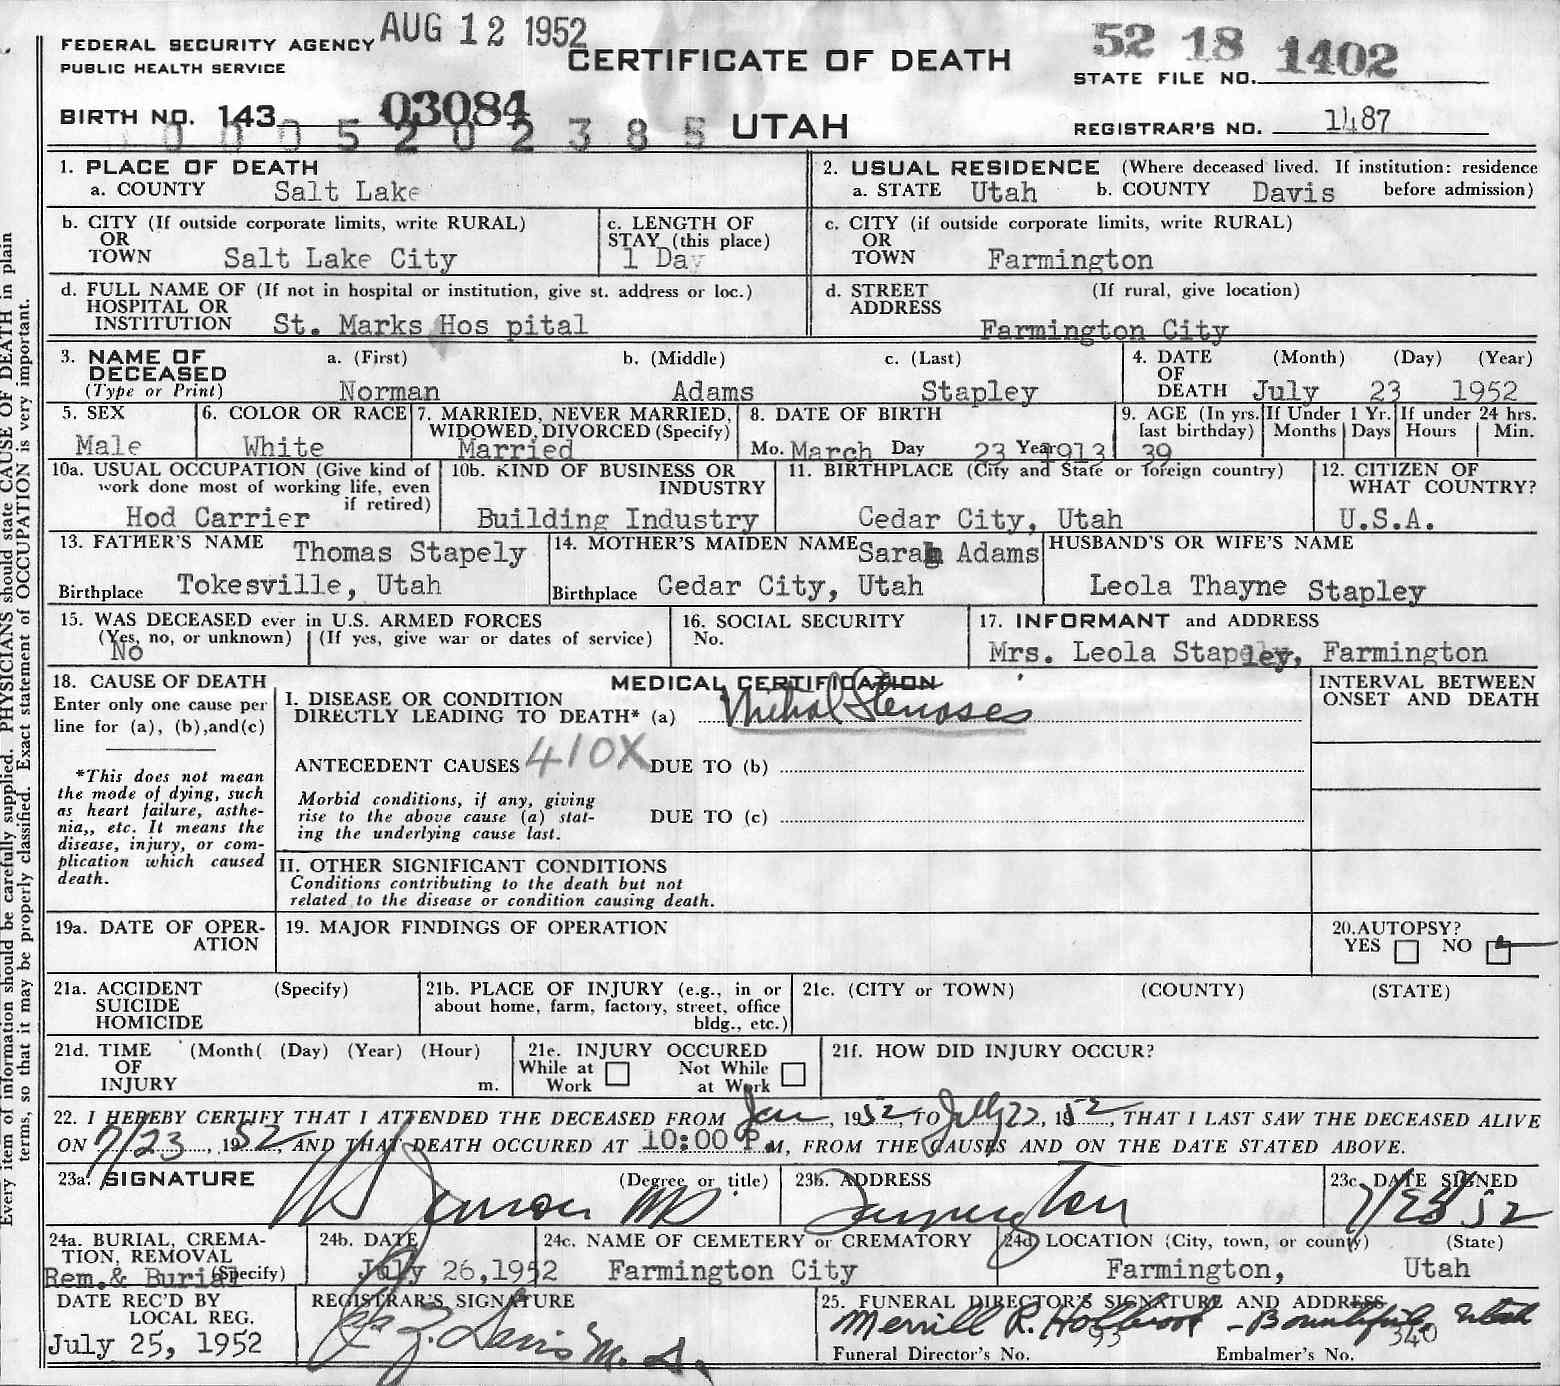 AUG 12 1952
FEDERAL SECURITY AGENCY
PUBLIC HEALTH SERVICE
CERTIFICATE OF DEATH
52 18 1402
STATE FILE NO.
BIRTH NO. 143 03084
0005202385
UTAH
REGISTRAR'S NO. 1487
1. PLACE OF DEATH
a. COUNTY Salt Lake
2. USUAL RESIDENCE (Where deceased lived. If institution: residence before admission)
a. STATE Utah b. COUNTY Davis
b. CITY (If outside corporate limits, write RURAL)
OR
TOWN Salt Lake City
c. LENGTH OF
STAY (this place)
1 Day
c. CITY (if outside corporate limits, write RURAL)
OR
TOWN Farmington
d. FULL NAME OF (If not in hospital or institution, give st. address or loc.)
HOSPITAL OR
INSTITUTION St. Marks Hos pital
d. STREET (If rural, give location)
ADDRESS
Farmington City
3. NAME OF
DECEASED
(Type or Print)
a. (First) b. (Middle) c. (Last)
Norman Adams Stapley
4. DATE (Month) (Day) (Year)
OF
DEATH July 23 1952
5. SEX
Male
6. COLOR OR RACE
White
7. MARRIED, NEVER MARRIED,
WIDOWED, DIVORCED (Specify)
Married
8. DATE OF BIRTH
Mo. March Day 23 Year 1913
9. AGE (In yrs. last birthday)
39
If Under 1 Yr.
Months Days
If under 24 hrs.
Hours Min.
10a. USUAL OCCUPATION (Give kind of
work done most of working life, even
if retired)
Hod Carrier
10b. KIND OF BUSINESS OR
INDUSTRY
Building Industry
11. BIRTHPLACE (City and State or foreign country)
Cedar City, Utah
12. CITIZEN OF
WHAT COUNTRY?
U.S.A.
13. FATHER'S NAME Thomas Stapely
Birthplace Tokesville, Utah
14. MOTHER'S MAIDEN NAME Sarah Adams
Birthplace Cedar City, Utah
HUSBAND'S OR WIFE'S NAME
Leola Thayne Stapley
15. WAS DECEASED ever in U.S. ARMED FORCES
(Yes, no, or unknown) (If yes, give war or dates of service)
No
16. SOCIAL SECURITY
No.
17. INFORMANT and ADDRESS
Mrs. Leola Stapley, Farmington
18. CAUSE OF DEATH
Enter only one cause per
line for (a), (b), and (c)
*This does not mean
the mode of dying, such
as heart failure, asthe-
nia,, etc. It means the
disease, injury, or com-
plication which caused
death.
MEDICAL CERTIFICATION
I. DISEASE OR CONDITION
DIRECTLY LEADING TO DEATH* (a) Mitral Stenoses
ANTECEDENT CAUSES 410X DUE TO (b)
Morbid conditions, if any, giving
rise to the above cause (a) stat-
ing the underlying cause last.
DUE TO (c)
II. OTHER SIGNIFICANT CONDITIONS
Conditions contributing to the death but not
related to the disease or condition causing death.
INTERVAL BETWEEN
ONSET AND DEATH
19a. DATE OF OPER-
ATION
19. MAJOR FINDINGS OF OPERATION
20. AUTOPSY?
YES NO
21a. ACCIDENT (Specify)
SUICIDE
HOMICIDE
21b. PLACE OF INJURY (e.g., in or
about home, farm, factory, street, office
bldg., etc.)
21c. (CITY or TOWN) (COUNTY) (STATE)
21d. TIME (Month( (Day) (Year) (Hour)
OF
INJURY m.
21e. INJURY OCCURED
While at Work Not While at Work
21f. HOW DID INJURY OCCUR?
22. I HEREBY CERTIFY THAT I ATTENDED THE DECEASED FROM Jan, 1952, TO July 22, 1952, THAT I LAST SAW THE DECEASED ALIVE
ON 7/23, 1952, AND THAT DEATH OCCURED AT 10:00 P.M, FROM THE CAUSES AND ON THE DATE STATED ABOVE.
23a. SIGNATURE (Degree or title)
Jenson MD
23b. ADDRESS
Farmington
23c. DATE SIGNED
7/25/52
24a. BURIAL, CREMA-
TION, REMOVAL
(Specify)
Rem.& Burial
24b. DATE
July 26,1952
24c. NAME OF CEMETERY or CREMATORY
Farmington City
24d. LOCATION (City, town, or county) (State)
Farmington, Utah
DATE REC'D BY
LOCAL REG.
July 25, 1952
REGISTRAR'S SIGNATURE
M.D.
25. FUNERAL DIRECTOR'S SIGNATURE AND ADDRESS
Merrill R. Holbrook - Bountiful, Utah
Funeral Director's No. 93 Embalmer's No. 340
Every item of information should be carefully supplied. PHYSICIANS should state CAUSE OF DEATH in plain
terms, so that it may be properly classified. Exact statement of OCCUPATION is very important.